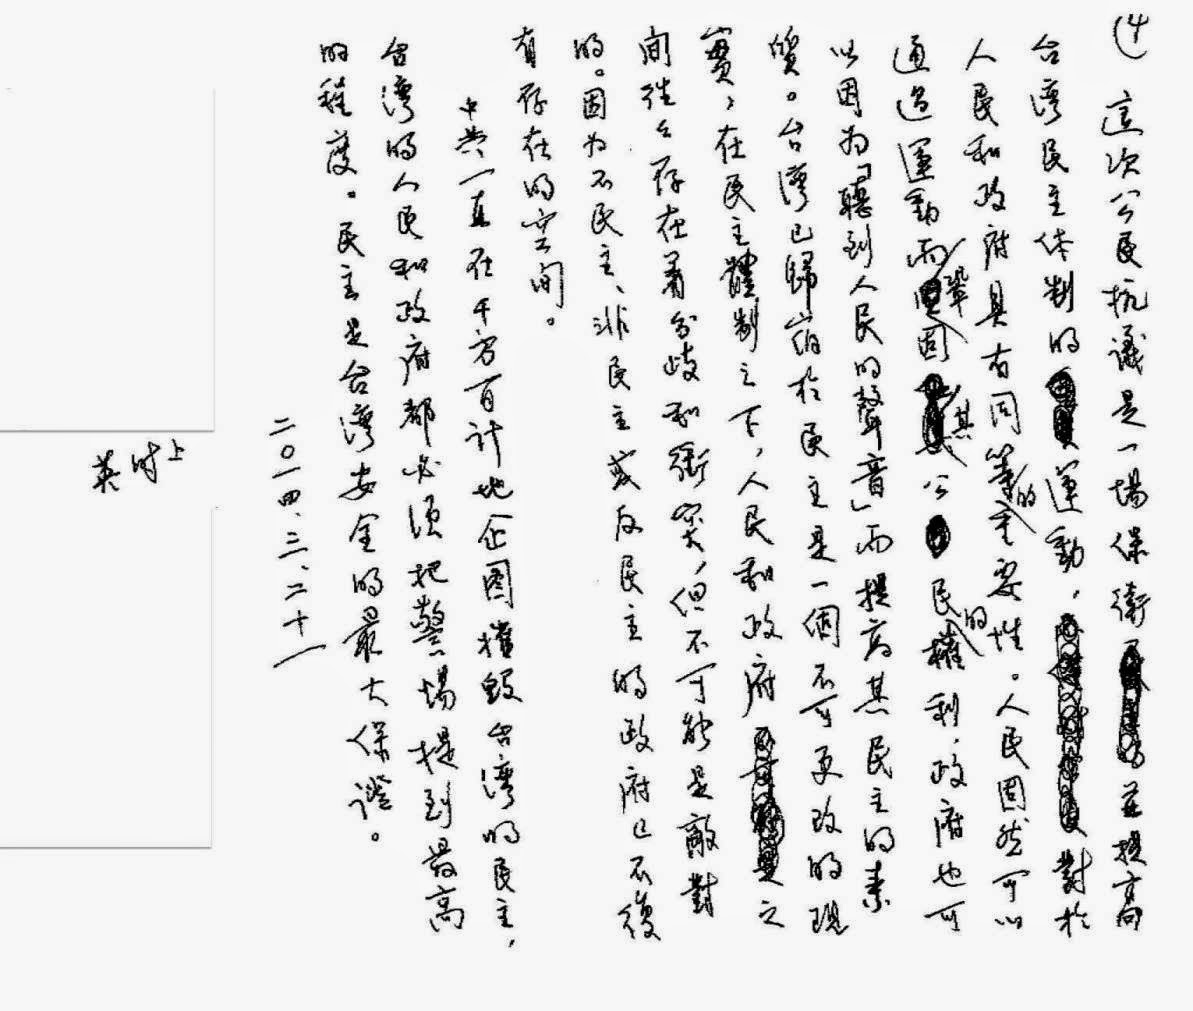 ④ 這次公民抗議是一場保衛並提高
台灣民主体制的運動,對於
人民和政府具有同等的重要性。人民固然可以
通過運動而鞏固其公民的權利,政府也可
以因為「聽到人民的聲音」而提高其民主的素
質。台灣已歸宿於民主是一個不可更改的現
實,在民主體制之下,人民和政府之
間雖然存在着分歧和衝突,但不可能是敵對
的。因为不民主、非民主或反民主的政府已不復
有存在的空间。
中共一直在千方百計地企图摧毀台灣的民主,
台灣的人民和政府都必须把警惕提到最高
的程度。民主是台灣安全的最大保證。
英时上
二〇一四、三、二十一